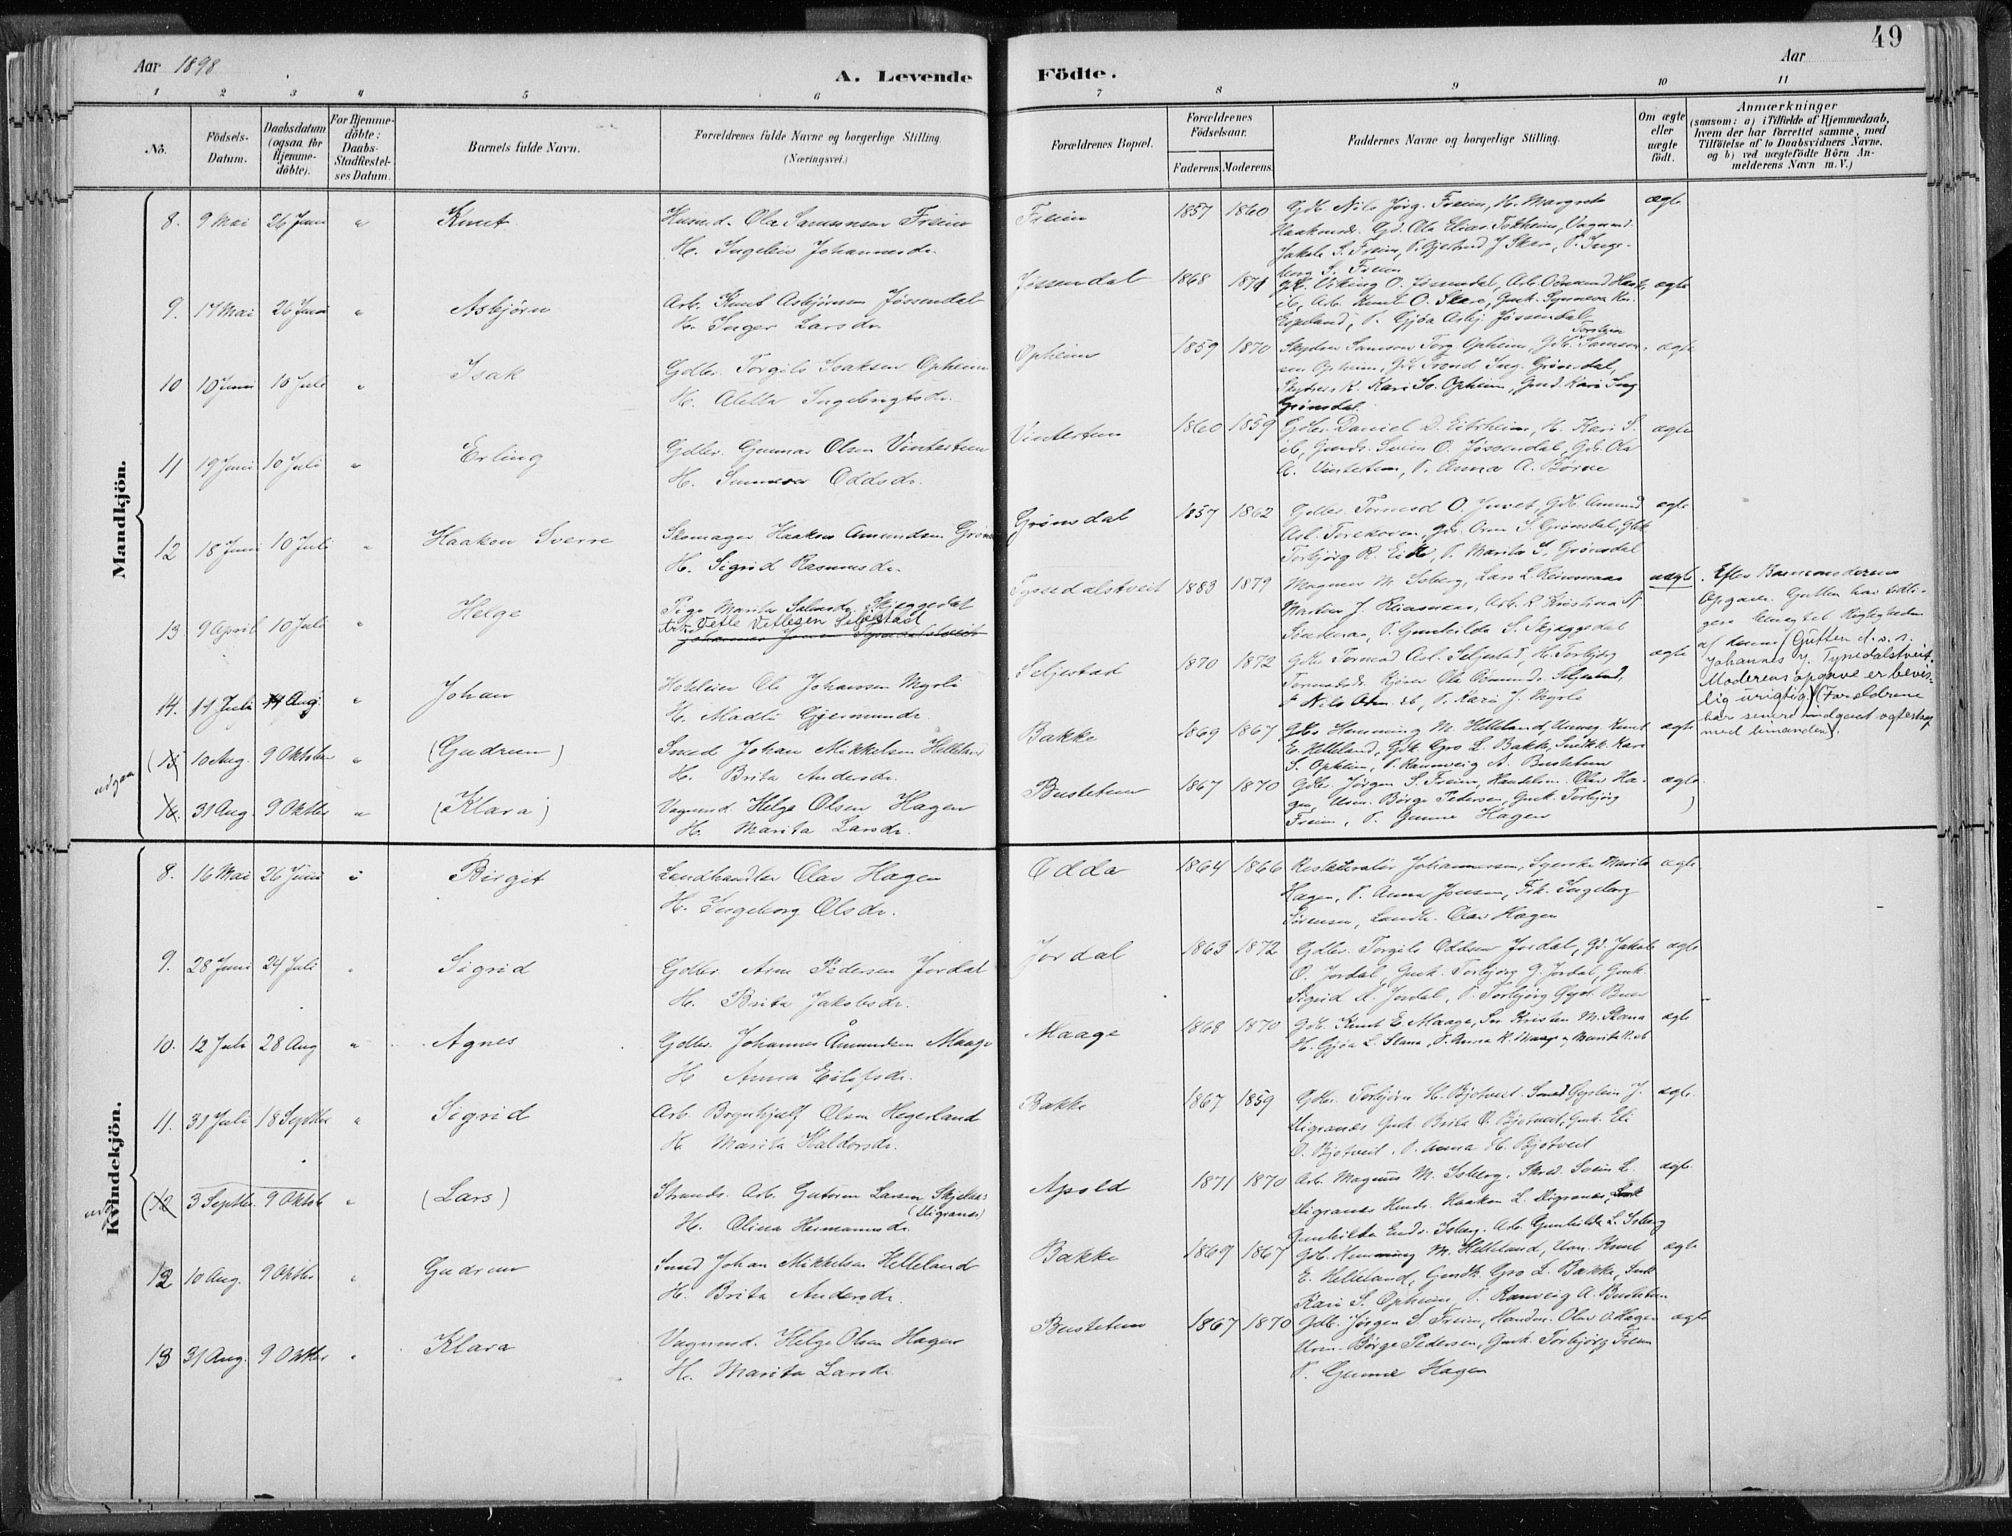 Aar 1898
A. Levende Födte.
Aar
49
1 2 3 4 5 6 7 8 9 10 11
No.
Födsels-Datum.
Daabsdatum (ogsaa for Hjemme-döbte).
For Hjemme-döbte: Daabs-Stadfæstel-ses Datum.
Barnets fulde Navn.
Forældrenes fulde Navne og borgerlige Stilling.
(Næringsvei.)
Forældrenes Bopæl.
Forældrenes Födselsaar.
Faderens. Moderens.
Faddernes Navne og borgerlige Stilling.
Om ægte eller uægte födt.
Anmærkninger
(saasom: a) i Tilfælde af Hjemmedaab,
hvem der har forrettet samme, med
Tilföielse af to Daabsvidners Navne.
og b) ved uægtefödte Börn An-
melderens Navn m. V.)
Mandkjön.
8. 9 Mai 26 Juni " Knut
Husmd. Ola Samsonsen Freim
H. Ingelein Johannesdr.
Freim 1857 1860
Gdb. Nils Jørg. Freim, H. Margreta
Haakonsdr. Gd. Ola Elias Tokheim, Ungmd.
Jakob S. Freim, P. Gjertrud J Skare, P. Inge-
borg S. Freim
ægte
9. 17 Mai 26 Juni " Asbjörn
Arb. Knut Asbjørnsen Jøssendal
H. Inger Larsdr.
Jøssendal 1868 1871
Gdb. Viking O. Jøssendal, Arb. Odmund
ib, Arb. Knut O. Skare, Gmk. Synneva Kn.
Espeland, P. Gjøa Asbj. Jøssendal
ægte
10 10 Juni 10 Juli " Isak
Gdbr. Torgils Isaksen Opheim
H. Aletta Ingebrigtsdr.
Opheim 1859 1870
Skydsm Samson Torg. Opheim, Gdb. Torstein Samson-
sen Opheim, Gdb Trond Ing. Grønsdal,
Skydsm K. Kari So. Opheim, Gmd. Kari Ing
Grønsdal.
ægte
11 19 Juni 10 Juli " Erling
Gdbr. Gunnar Olsen Vintertun
H. Sunneva Oddsdr.
Vintertun 1860 1859
Gdbr. Daniel D. Eitrheim, H. Kari S.
ib, Gmds. Svein O. Jøssendal, Gds. Ola
A. Vintertun, P. Anna A. Børve
ægte
12 18 Juni 10 Juli " Haakon Sverre
Skomager Haakon Amundsen Grøns
H. Sigrid Rasmusdr.
Grønsdal 1857 1862
Gdbr. Tormod O. Juvet, Gdb. Amund
Asl. Torekoven, Gds. Orm S. Grønsdal, Gbk
Torbjørg R. Eide, P. Marita S. Grønsdal
ægte
13. 9 April 10 Juli " Helge
Pige Marita Salmdr. Skjeggedal
Arb. Vetle Vetlesen Seljestad
Johannes Tyssedalstveit
Tyssedalstveit 1883 1879
Magnus M. Isberg, Lars L. Reinsnaas
Martin J. Reinsnaas, Arb. R. Kristina N
P. Gunhilda S. Skjeggedal
uægte
Efter Barnemoderens
Opgave. Gutten har tidli-
gere benegtet Rigtigheden
af denne (Gutten d. v. s.
Johannes J. Tyssedalstveit.
Moderens opgave er bevis-
lig urigtig) (Forældrene
har senere indgaaet ægteskap
med hinanden).
14. 11 Juli 14 Aug. " Johan
Hoteleier Ole Johansen Myrli
H. Madli Gjermundr.
Seljestad 1870 1872
Gdbr Tormod Asl. Seljestad, H. Torbjørg
Tormodsdr. Ola Osmund. Seljestad,
P Nils Osm. ib, P. Kari J. Myrli
ægte
udgaa
(15) 10 Aug. 9 Oktober " (Gudrun)
Smed Johan Mikkelsen Helleland
H. Brita Andersdr.
Bakke 1869 1867
Gdbr Hemming M. Helleland, Ungm. Knut
E. Helleland, Gdk. Gro L. Bakke, Smdk. Kari
S. Opheim, P. Rannveig A. Bustetun
ægte
16. 31 Aug. 9 Oktbr " (Klara)
Ungmd. Helge Olsen Hagen
H. Marita Larsdr.
Bustetun 1867 1870
Gdbr. Jørgen S. Freim, Handelsm. Olav Ha-
gen, Urm. Børge Pedersen, Gmk. Torbjørg
Freim, P. Gunne Hagen
ægte
Kvindekjön.
8. 16 Mai 26 Juni " Birgit
Landhandler Olav Hagen
H. Ingeborg Olsdr.
Odda 1864 1866
Restauratør Johannesen, Syerske Marita
Hagen, P. Anna Jensen, Frk. Ingeborg
Sørensen, Landh. Olav Hagen
ægte
9. 28 Juni 24 Juli " Sigrid
Gdbr. Arne Pedersen Jordal
H. Brita Jakobsdr.
Jordal 1863 1872
Gdbr. Torgils Oddsen Jordal, Gd. Jakob
O. Jordal, Gmk. Torbjørg G. Jordal, Gmk.
Sigrid A. Jordal, P. Torbjørg Gjert. Buer
ægte
10. 12 Juli 28 Aug " Agnes
Gdbr. Johannes Åmundsen Maage
H Anna Eilifsdr.
Maage 1868 1870
Gdb. Knut E. Maage, Sn. Kristen M. Slana
H. Gjøa L. Slana, P. Anna K. Maage, Marita K. ib
ægte
11. 31 Juli 18 Septbr " Sigrid
Arb. Brynhjulf Olsen Hegerland
H. Marita Haldorsdr.
Bakke 1867 1859
Gdbr. Torbjørn H. Bjotveit. Smed Gjestein J.
Digranes Gmk Brita O. Bjotveit, Gmk. Eli
O. Bjotveit, P. Anna H. Bjotveit
ægte
udg.
(12 3 Septbr. 9 Oktob " (Lars)
Strands. Arb. Gutorm Larsen Skjelnes
(Digranes)
H. Olina Hermannsdr.
Apold 1871 1870
Arb. Magnus M. Isberg, Skred. Svein L.
Digranes Haakon L. Digranes, Gmk
Gunhilda Endr. Isberg. Arb. Gunhilda L. Isberg
ægte
12 10 Aug. 9 Oktbr " Gudrun
Smed Johan Mikkelsen Helleland
H. Brita Andersdr.
Bakke 1869 1867
Gdb. Hemming M. Helleland, Um. Knut
E. Helleland, Gmdk. Gro L. Bakke, Smk
Kari S. Opheim, P. Ranveig A. Bustetun
ægte
13 31 Aug. 9 Oktbr " Klara
Ungmd. Helge Olsen Hagen
H. Marita Larsdr
Bustetun 1867 1870
Gdb. Jørgen S. Freim, Handm. Olav O. Hagen
Urm. Børge Pedersen, Gmk. Torbjørg Freim
P. Gunne Hagen
ægte